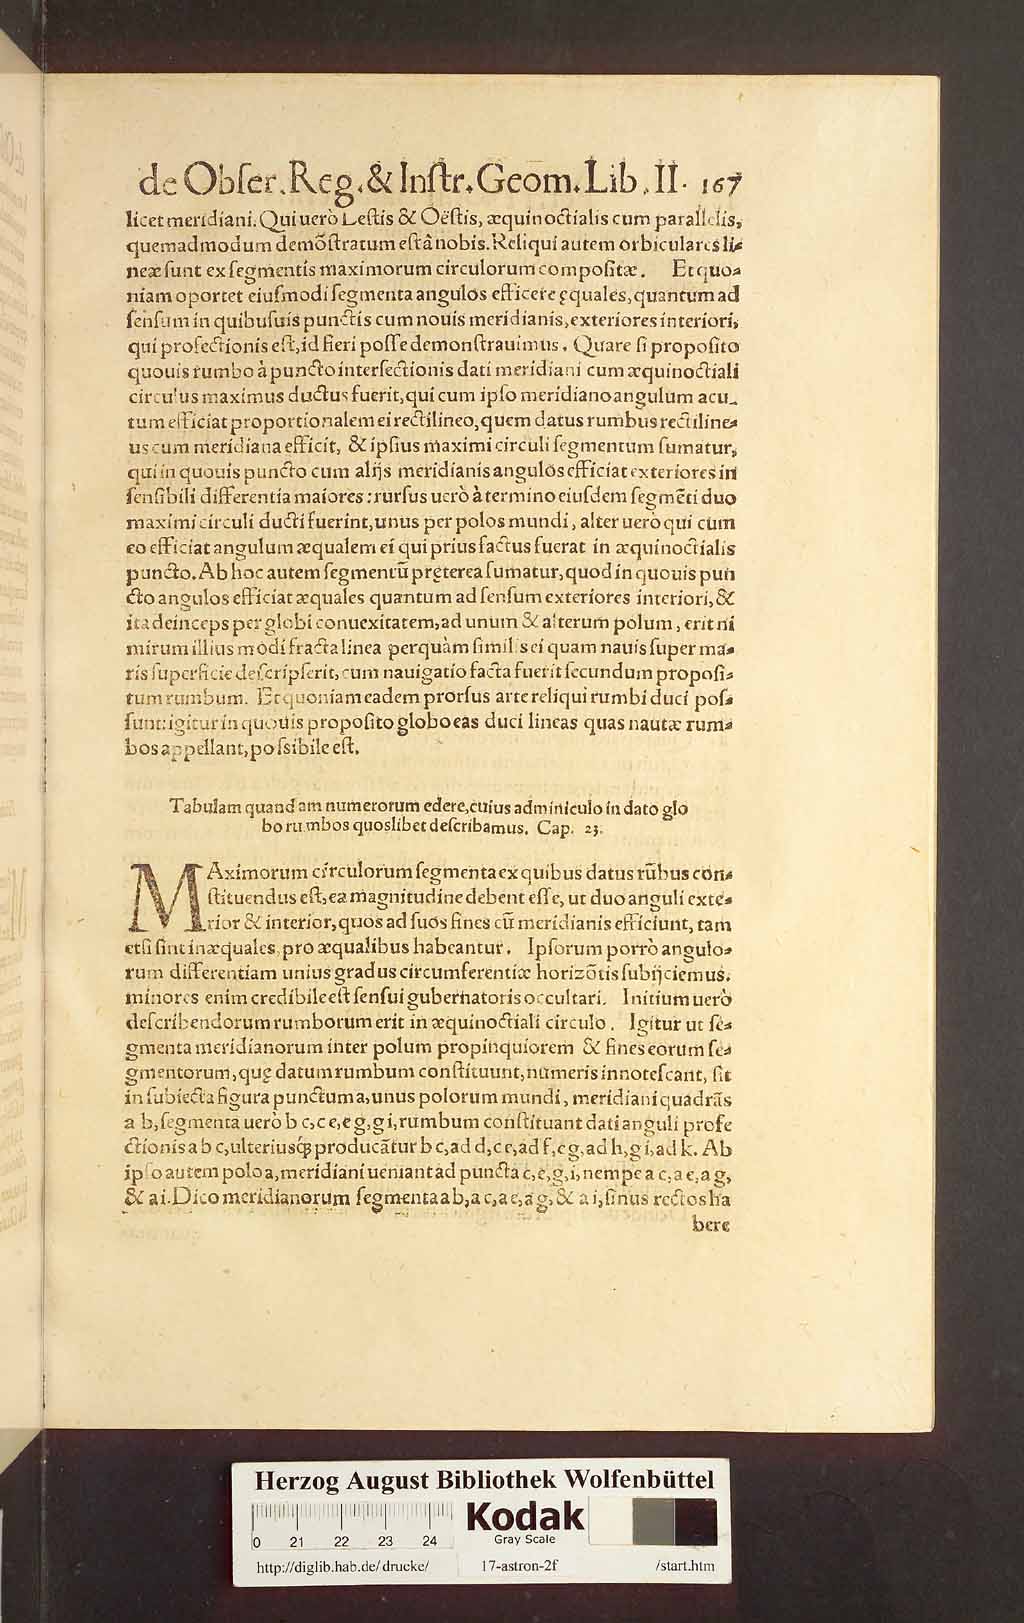 de Obſer. Reg. & Inſtr. Geom. Lib. II. 167
licet meridiani. Qui uerò Leſtis & Oëſtis, æquinoctialis cum parallelis,
quemadmodum demõſtratum eſt à nobis. Reliqui autem orbiculares li-
neæ ſunt ex ſegmentis maximorum circulorum compoſitæ. Et quo-
niam oportet eiuſmodi ſegmenta angulos efficere ęquales, quantum ad
ſenſum in quibuſuis punctis cum nouis meridianis, exteriores interiori,
qui profectionis eſt, id fieri poſſe demonſtrauimus. Quare ſi propoſito
quouis rumbo à puncto interſectionis dati meridiani cum æquinoctiali
circulus maximus ductus fuerit, qui cum ipſo meridiano angulum acu-
tum efficiat proportionalem ei rectilineo, quem datus rumbus rectiline-
us cum meridiana efficit, & ipſius maximi circuli ſegmentum ſumatur,
qui in quouis puncto cum alijs meridianis angulos efficiat exteriores in
ſenſibili differentia maiores: rurſus uerò à termino eiuſdem ſegmẽti duo
maximi circuli ducti fuerint, unus per polos mundi, alter uerò qui cum
eo efficiat angulum æqualem ei qui prius factus fuerat in æquinoctialis
puncto. Ab hoc autem ſegmentũ pręterea ſumatur, quod in quouis pun
cto angulos efficiat æquales quantum ad ſenſum exteriores interiori, &
ita deinceps per globi conuexitatem, ad unum & alterum polum, erit ni
mirum illius modi fracta linea perquàm ſimilis ei quam nauis ſuper ma-
ris ſuperficie deſcripſerit, cum nauigatio facta fuerit ſecundum propoſi-
tum rumbum. Et quoniam eadem prorſus arte reliqui rumbi duci poſ-
ſunt: igitur in quouis propoſito globo eas duci lineas quas nautæ rum-
bos appellant, poſsibile eſt.
Tabulam quandam numerorum edere, cuius adminiculo in dato glo
bo rumbos quoslibet deſcribamus. Cap. 23.
MAximorum circulorum ſegmenta ex quibus datus rũbus con-
ſtituendus eſt, ea magnitudine debent eſſe, ut duo anguli exte-
rior & interior, quos ad ſuos fines cũ meridianis efficiunt, tam
etſi ſint inæquales, pro æqualibus habeantur. Ipſorum porrò angulo-
rum differentiam unius gradus circumferentiæ horizõtis ſubijciemus.
minores enim credibile eſt ſenſui gubernatoris occultari. Initium uerò
deſcribendorum rumborum erit in æquinoctiali circulo. Igitur ut ſe-
gmenta meridianorum inter polum propinquiorem & fines eorum ſe-
gmentorum, quę datum rumbum conſtituunt, numeris innoteſcant, ſit
in ſubiecta figura punctum a, unus polorum mundi, meridiani quadrãs
a b, ſegmenta uerò b c, c e, e g, g i, rumbum conſtituant dati anguli profe
ctionis a b c, ulteriusq́ producãtur b c, ad d, c e, ad f, e g, ad h, g i, ad k. Ab
ipſo autem polo a, meridiani ueniant ad puncta c, e, g, i, nempe a c, a e, a g,
& a i. Dico meridianorum ſegmenta a b, a c, a e, a g, & a i, ſinus rectos ha
bere
Herzog August Bibliothek Wolfenbüttel
Kodak
Gray Scale
0 21 22 23 24
http://diglib.hab.de/drucke/ 17-astron-2f /start.htm